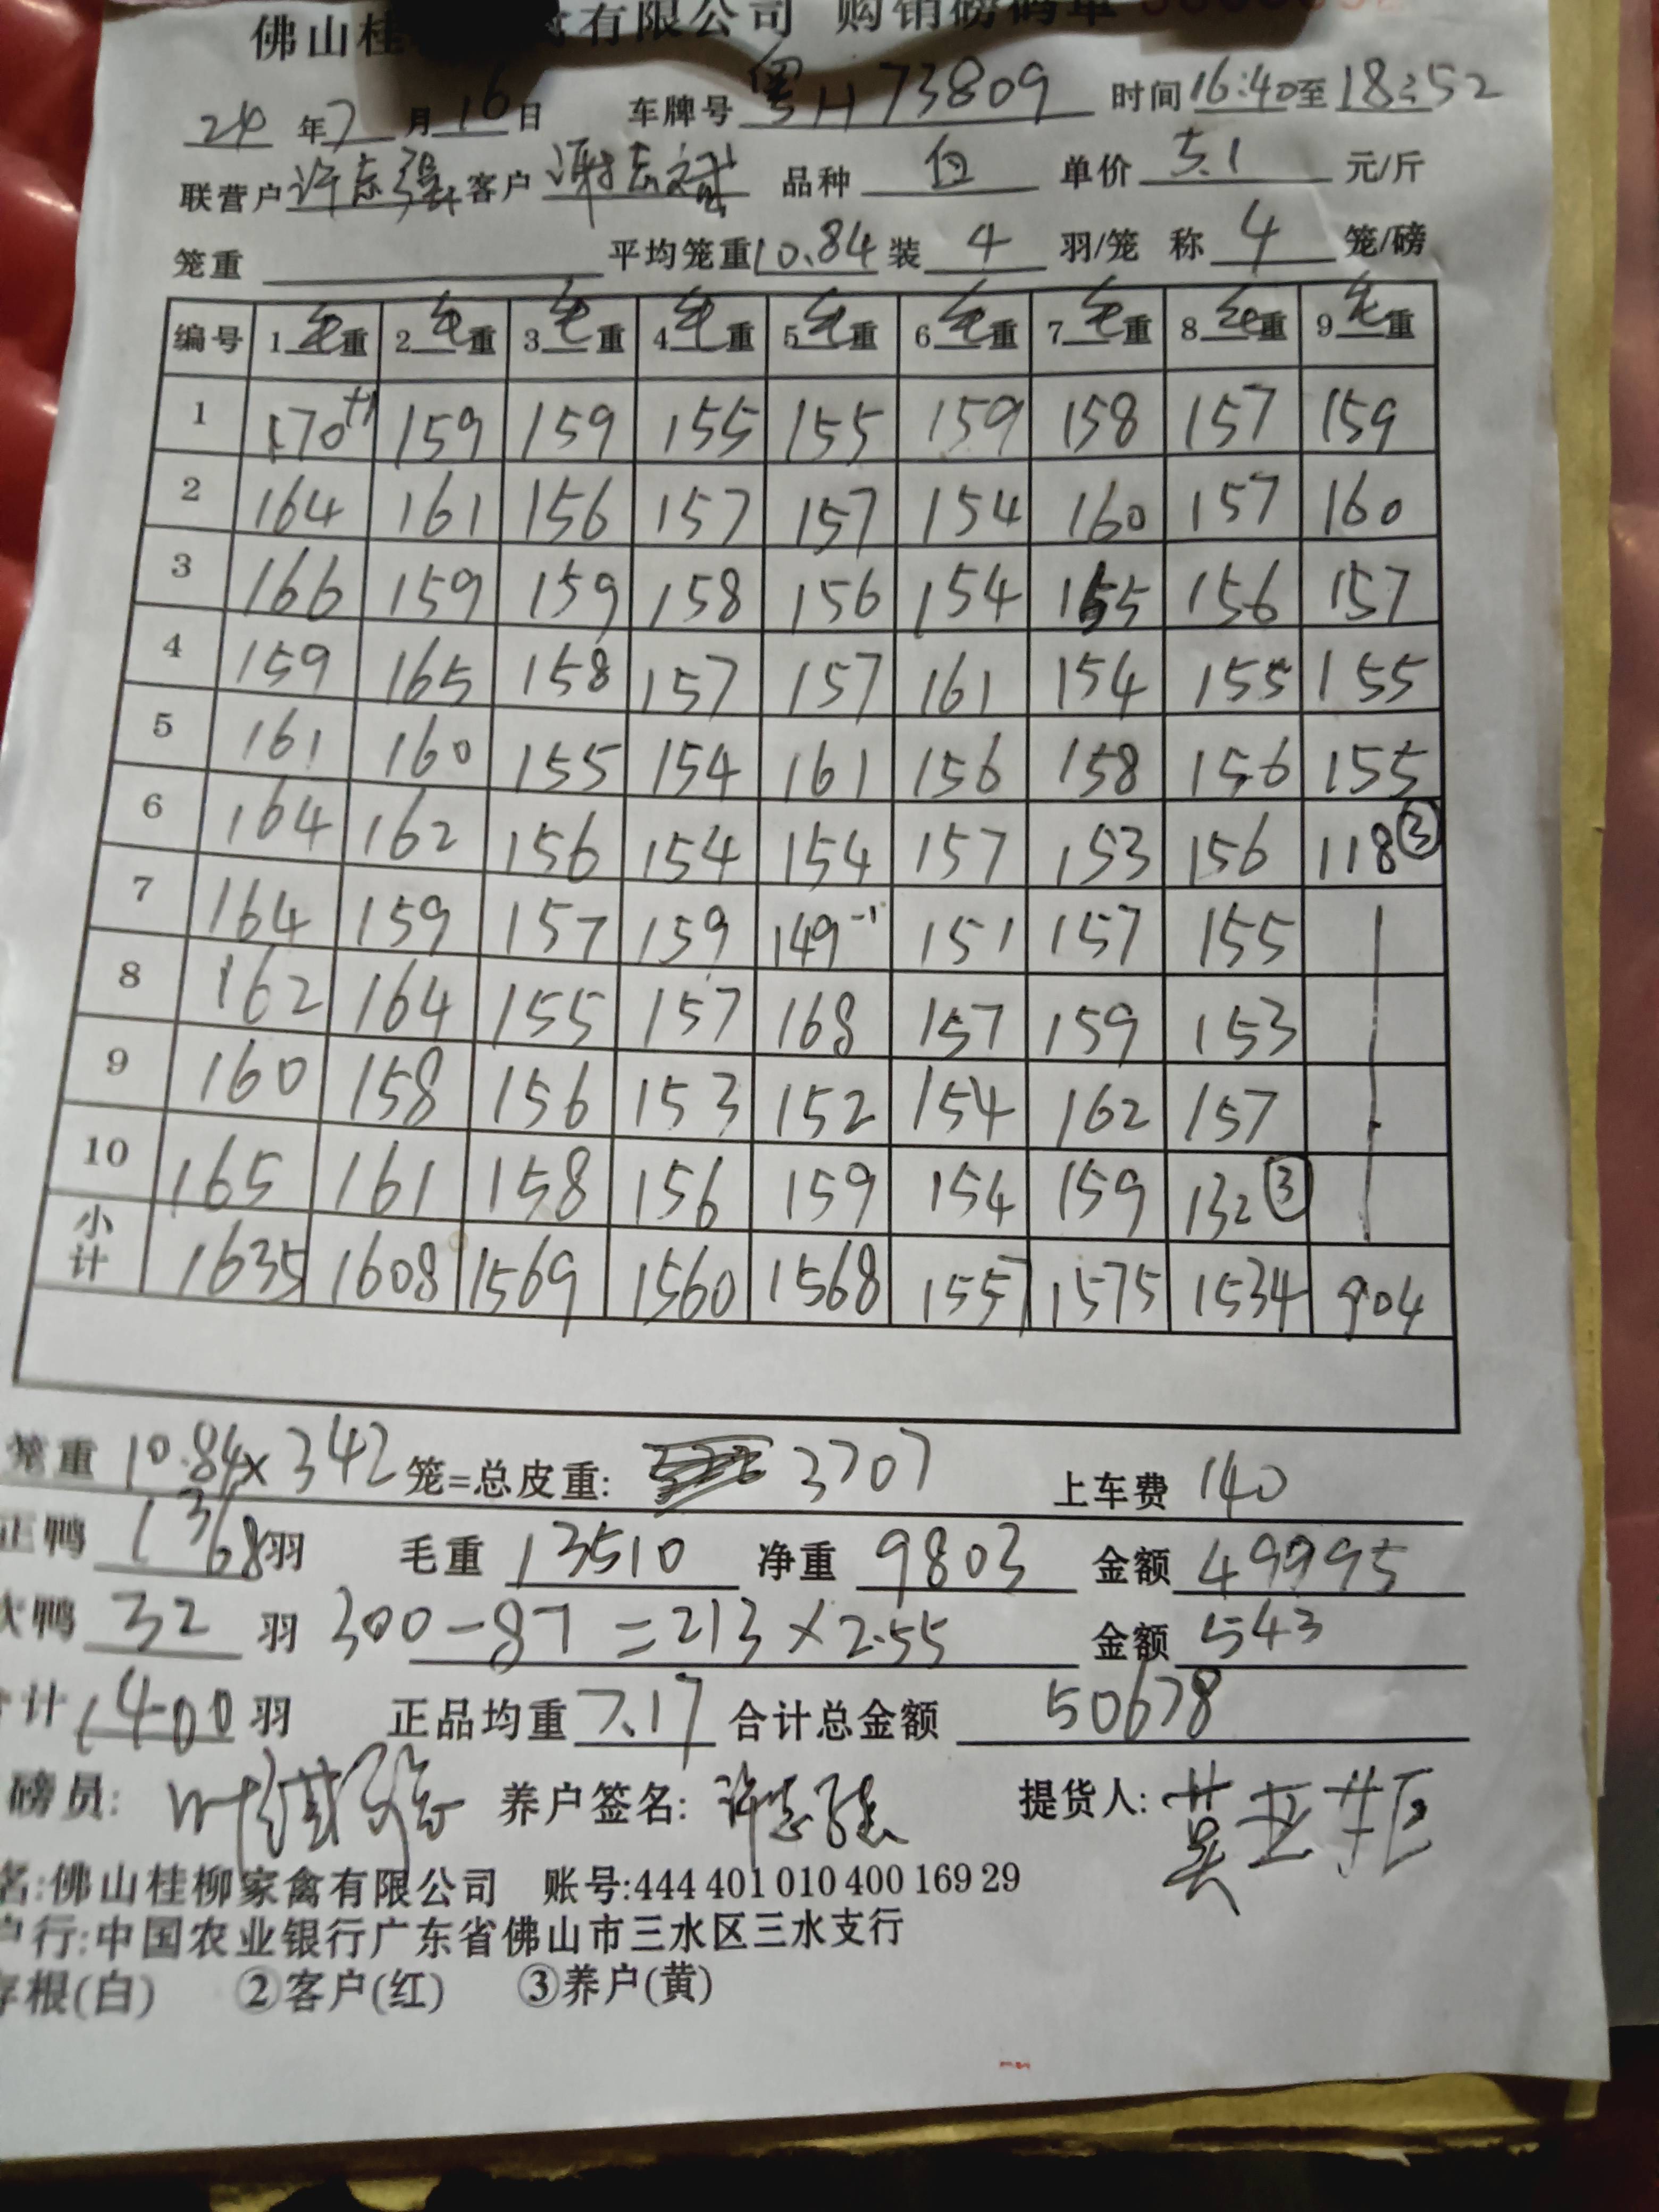 佛山桂 有限公司 购销磅码单
24年7月16日 车牌号 粤H73809 时间16:40至18:52
联营户 许志强 客户 谢志斌 品种 白 单价 5.1 元/斤
笼重 平均笼重10.84 装 4 羽/笼 称 4 笼/磅
编号 1毛重 2毛重 3毛重 4毛重 5毛重 6毛重 7毛重 8毛重 9毛重
1 170+1 159 159 155 155 159 158 157 159
2 164 161 156 157 157 154 160 157 160
3 166 159 159 158 156 154 155 156 157
4 159 165 158 157 157 161 154 155 155
5 161 160 155 154 161 156 158 156 155
6 164 162 156 154 154 157 153 156 118③
7 164 159 157 159 149-1 151 157 155
8 162 164 155 157 168 157 159 153
9 160 158 156 153 152 154 162 157
10 165 161 158 156 159 154 159 132③
小计 1635 1608 1569 1560 1568 1557 1575 1534 904
笼重 10.84×342 笼=总皮重: 3707 上车费 140
正鸭 1368羽 毛重 13510 净重 9803 金额 49995
次鸭 32 羽 300-87=213×2.55 金额 543
计 1400 羽 正品均重 7.17 合计总金额 50678
磅员: 养户签名: 许志强 提货人:
名:佛山桂柳家禽有限公司 账号:444 401 010 400 169 29
户行:中国农业银行广东省佛山市三水区三水支行
存根(白) ②客户(红) ③养户(黄)